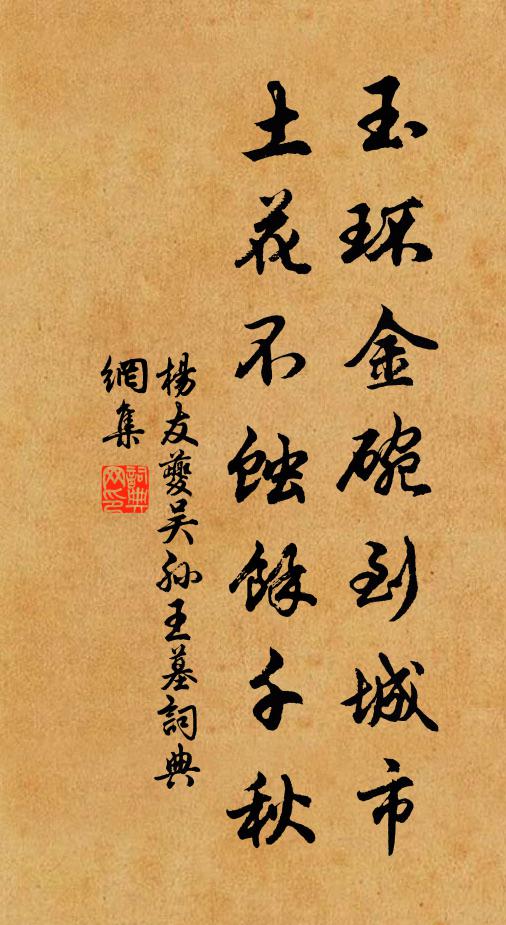 玉环金碗到城市
土花不蚀馀千秋
楊友夔吴孙王墓詞典
網集
詞典
网印